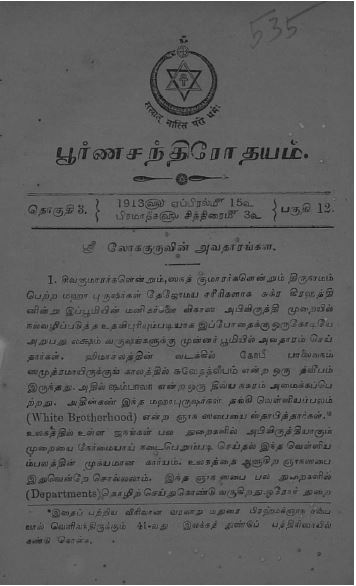 535
सत्यात् नास्ति परो धर्मः
பூர்ணசந்திரோதயம்.
தொகுதி 3. 1913ஹு ஏப்ரல்மீ 15உ பகுதி 12.
பிரமாதீசஹு சித்திரைமீ 3உ
ஸ்ரீ லோககுருவின் அவதாரங்கள்.
1. சிவகுமாரர்களென்றும், ஸநத் குமாரர்களென்றும் திருநாமம்
பெற்ற மஹா புருஷர்கள் தேஜோமய சரீரிகளாக சுக்ர கிரஹத்தி
னின்று இப்பூமியின் மனிதர்களே விகாஸ அபிவிருத்தி முறையில்
நலவழிப்படுத்த உதவிபுரியும்படியாக இப்போதைக்கு ஒருகோடியே
அறுபது லக்ஷம் வருஷங்களுக்கு முன்னர் பூமியில் அவதாரம் செய்
தார்கள். ஹிமாசலத்தின் வடக்கில் கோபீ பாலைவனம்
ஸமுத்ரமாயிருக்குங் காலத்தில் சுவேதத்வீபம் என்ற ஒரு த்வீபம்
இருந்தது. அதில் ஷம்பாலா என்ற ஒரு திவ்ய நகரம் அமைக்கப்பெ
ற்றது. அதின்கண் இந்த மஹாபுருஷர்கள் தங்கி வெளியம்பலம்
(White Brotherhood) என்ற ஞான ஸபையை ஸ்தாபித்தார்கள்.*
உலகத்தில் உள்ள ஜனங்கள் பல துறைகளில் அபிவிருத்தியாகும்
முறையை நேர்மையாய் நடைபெறும்படி செய்தல் இந்த வெள்ளிய
ம்பலத்தின் முக்யமான காரியம். உலகத்தை ஆளுகிற ஞானஸபை
இதுவென்றே சொல்லலாம். இந்த ஞான ஸபை பல துறைகளில்
(Departments) தொழிற் செய்துகொண்டு வருகிறது. ஒரோர் துறை
*இதைப் பற்றிய விரிவான வரலாறு மதுரை பிரஹ்மஞான ஸபை
யால் வெளிவந்திருக்கும் 41-வது இலக்கத் துண்டுப் பத்திரிகையில்
கண்டு கொள்க.